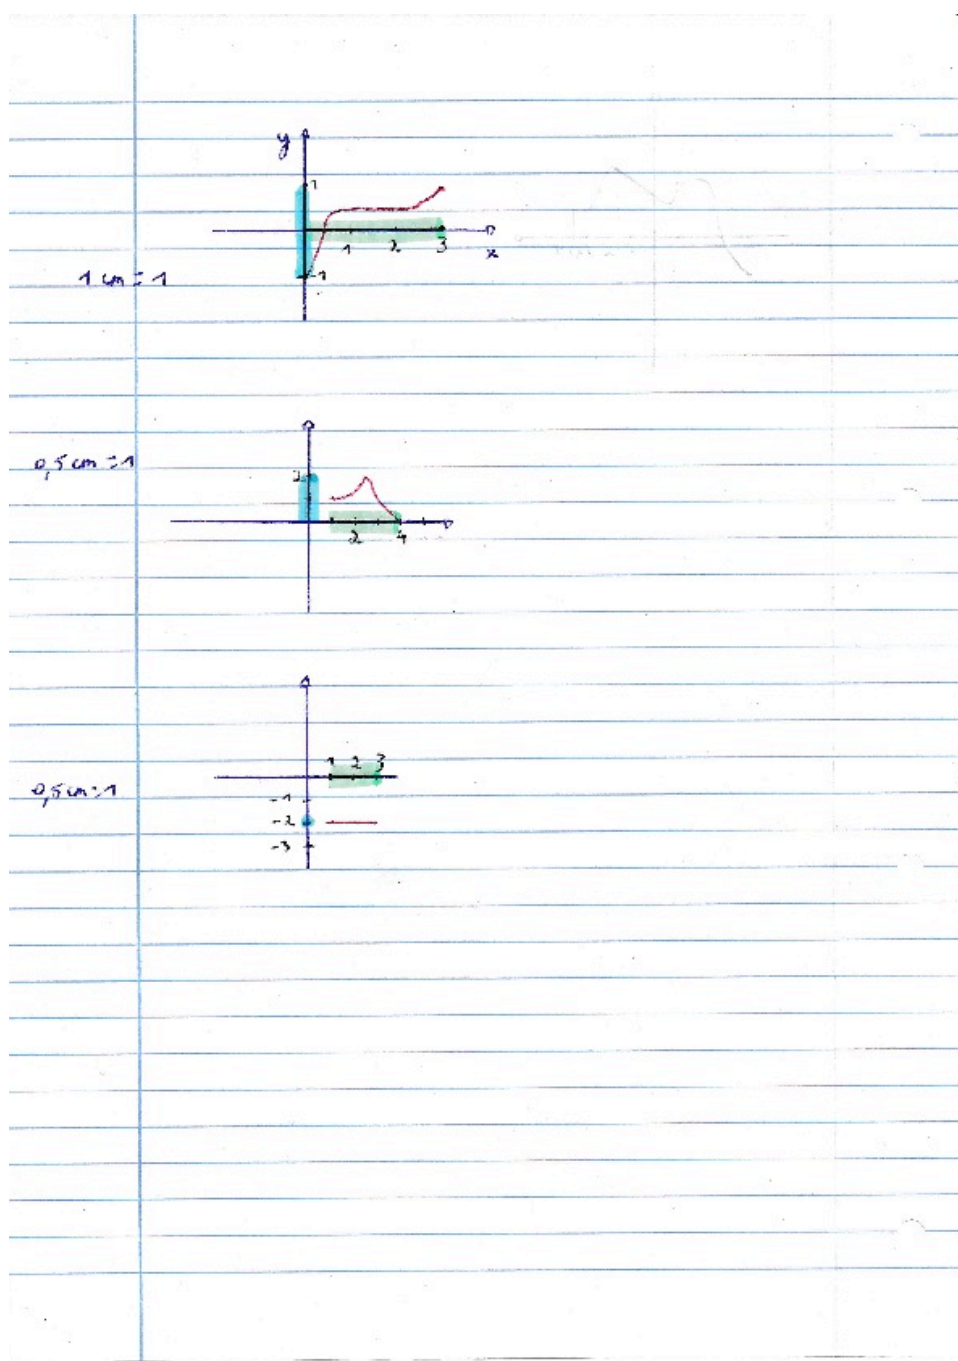 y
1
1 2 3
x
-1
1 cm = 1
0,5 cm = 1
2
2 4
1 2 3
0,5 cm = 1
-1
-2
-3